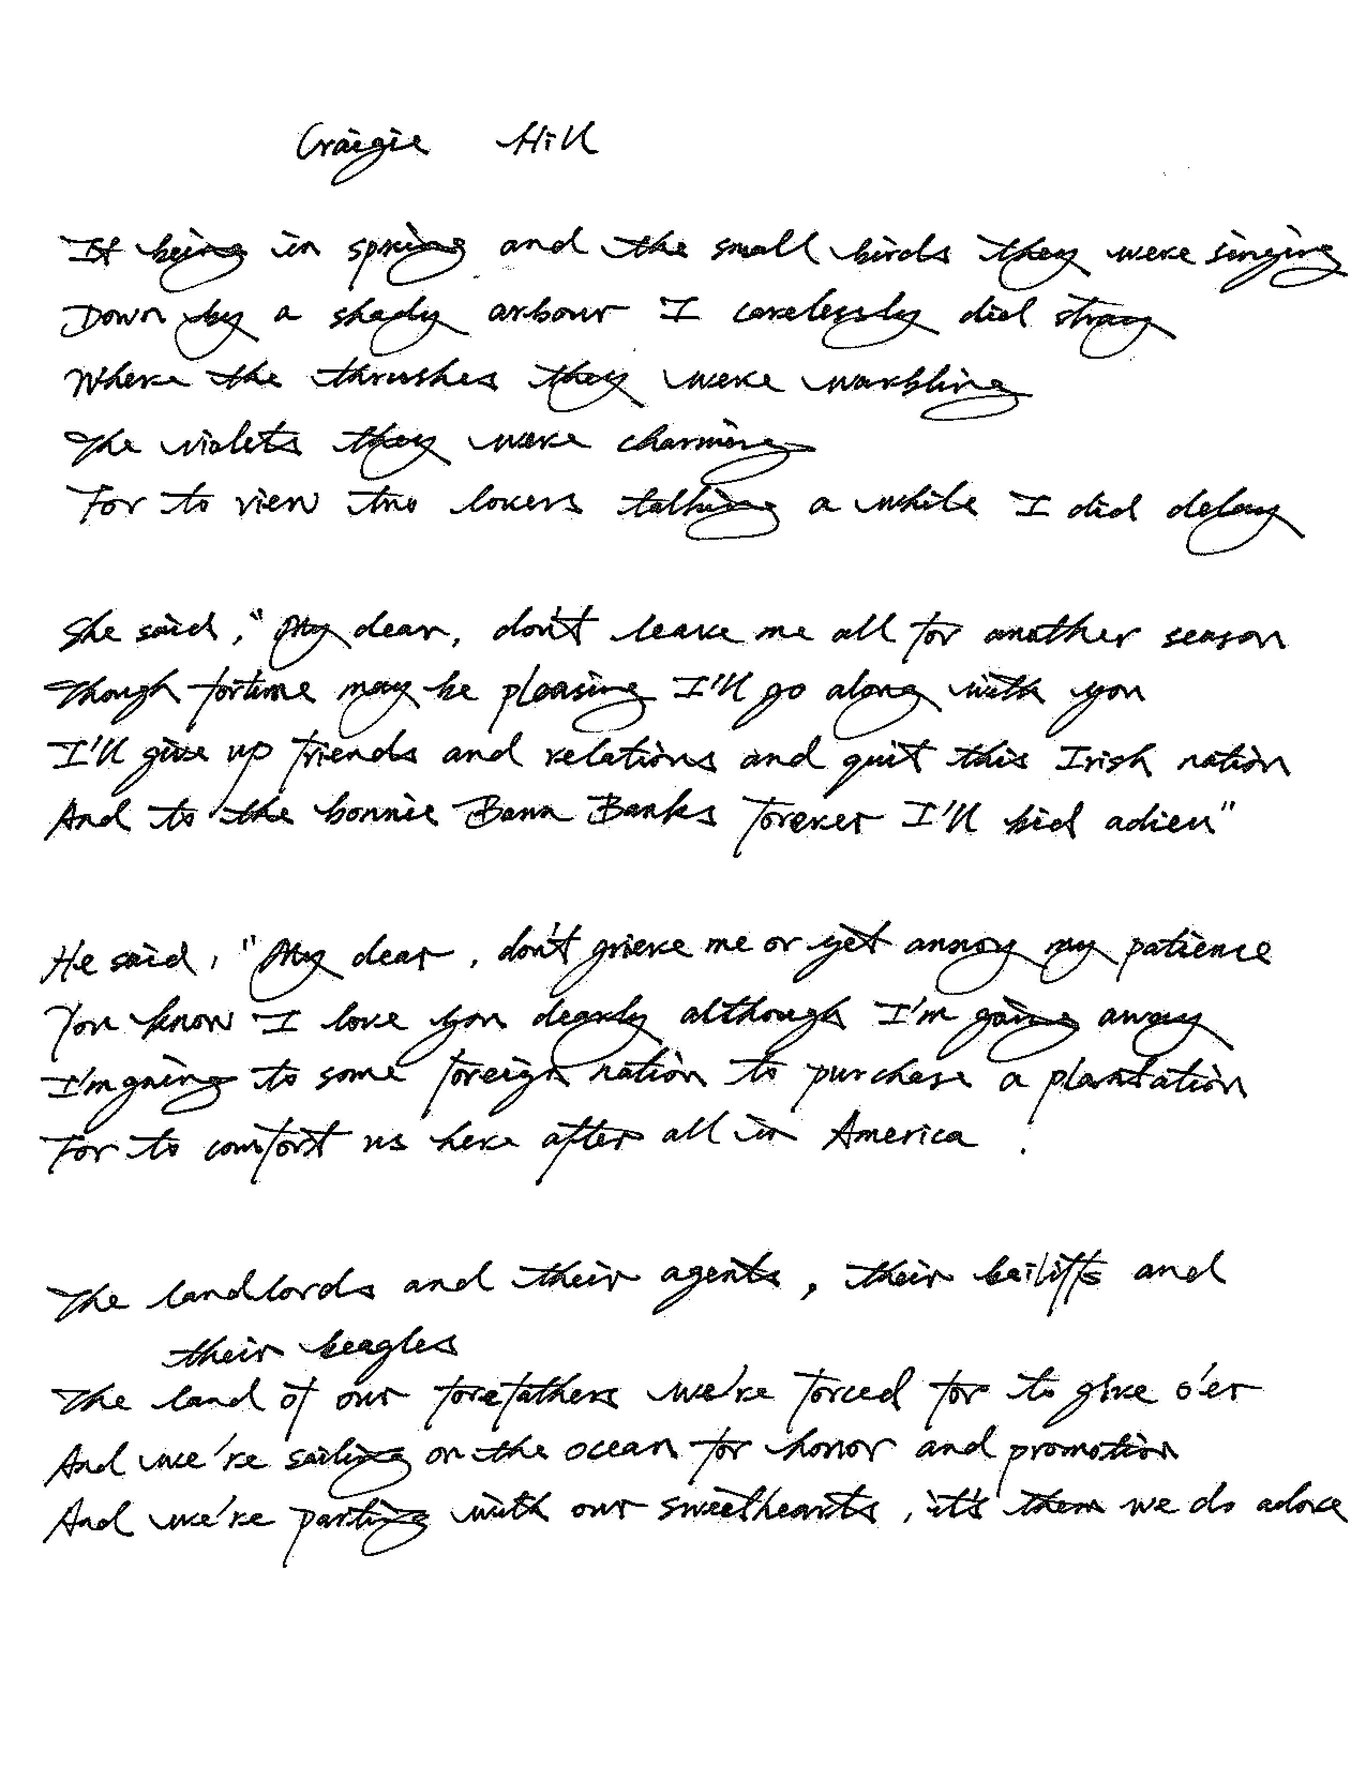 Craigie Hill
It being in spring and the small birds they were singing
Down by a shady arbour I carelessly did stray
Where the thrushes they were warbling
The violets they were charming
For to view two lovers talking a while I did delay
She said, "My dear, don't leave me all for another season
Though fortune may be pleasing I'll go along with you
I'll give up friends and relations and quit this Irish nation
And to the bonnie Bann Banks forever I'll bid adieu"
He said, "My dear, don't grieve me or yet annoy my patience
You know I love you dearly although I'm going away
I'm going to some foreign nation to purchase a plantation
For to comfort us here after all in America.
The landlords and their agents, their bailiffs and
their beagles
The land of our forefathers we're forced for to give o'er
And we're sailing on the ocean for honor and promotion
And we're parting with our sweethearts, it's them we do adore